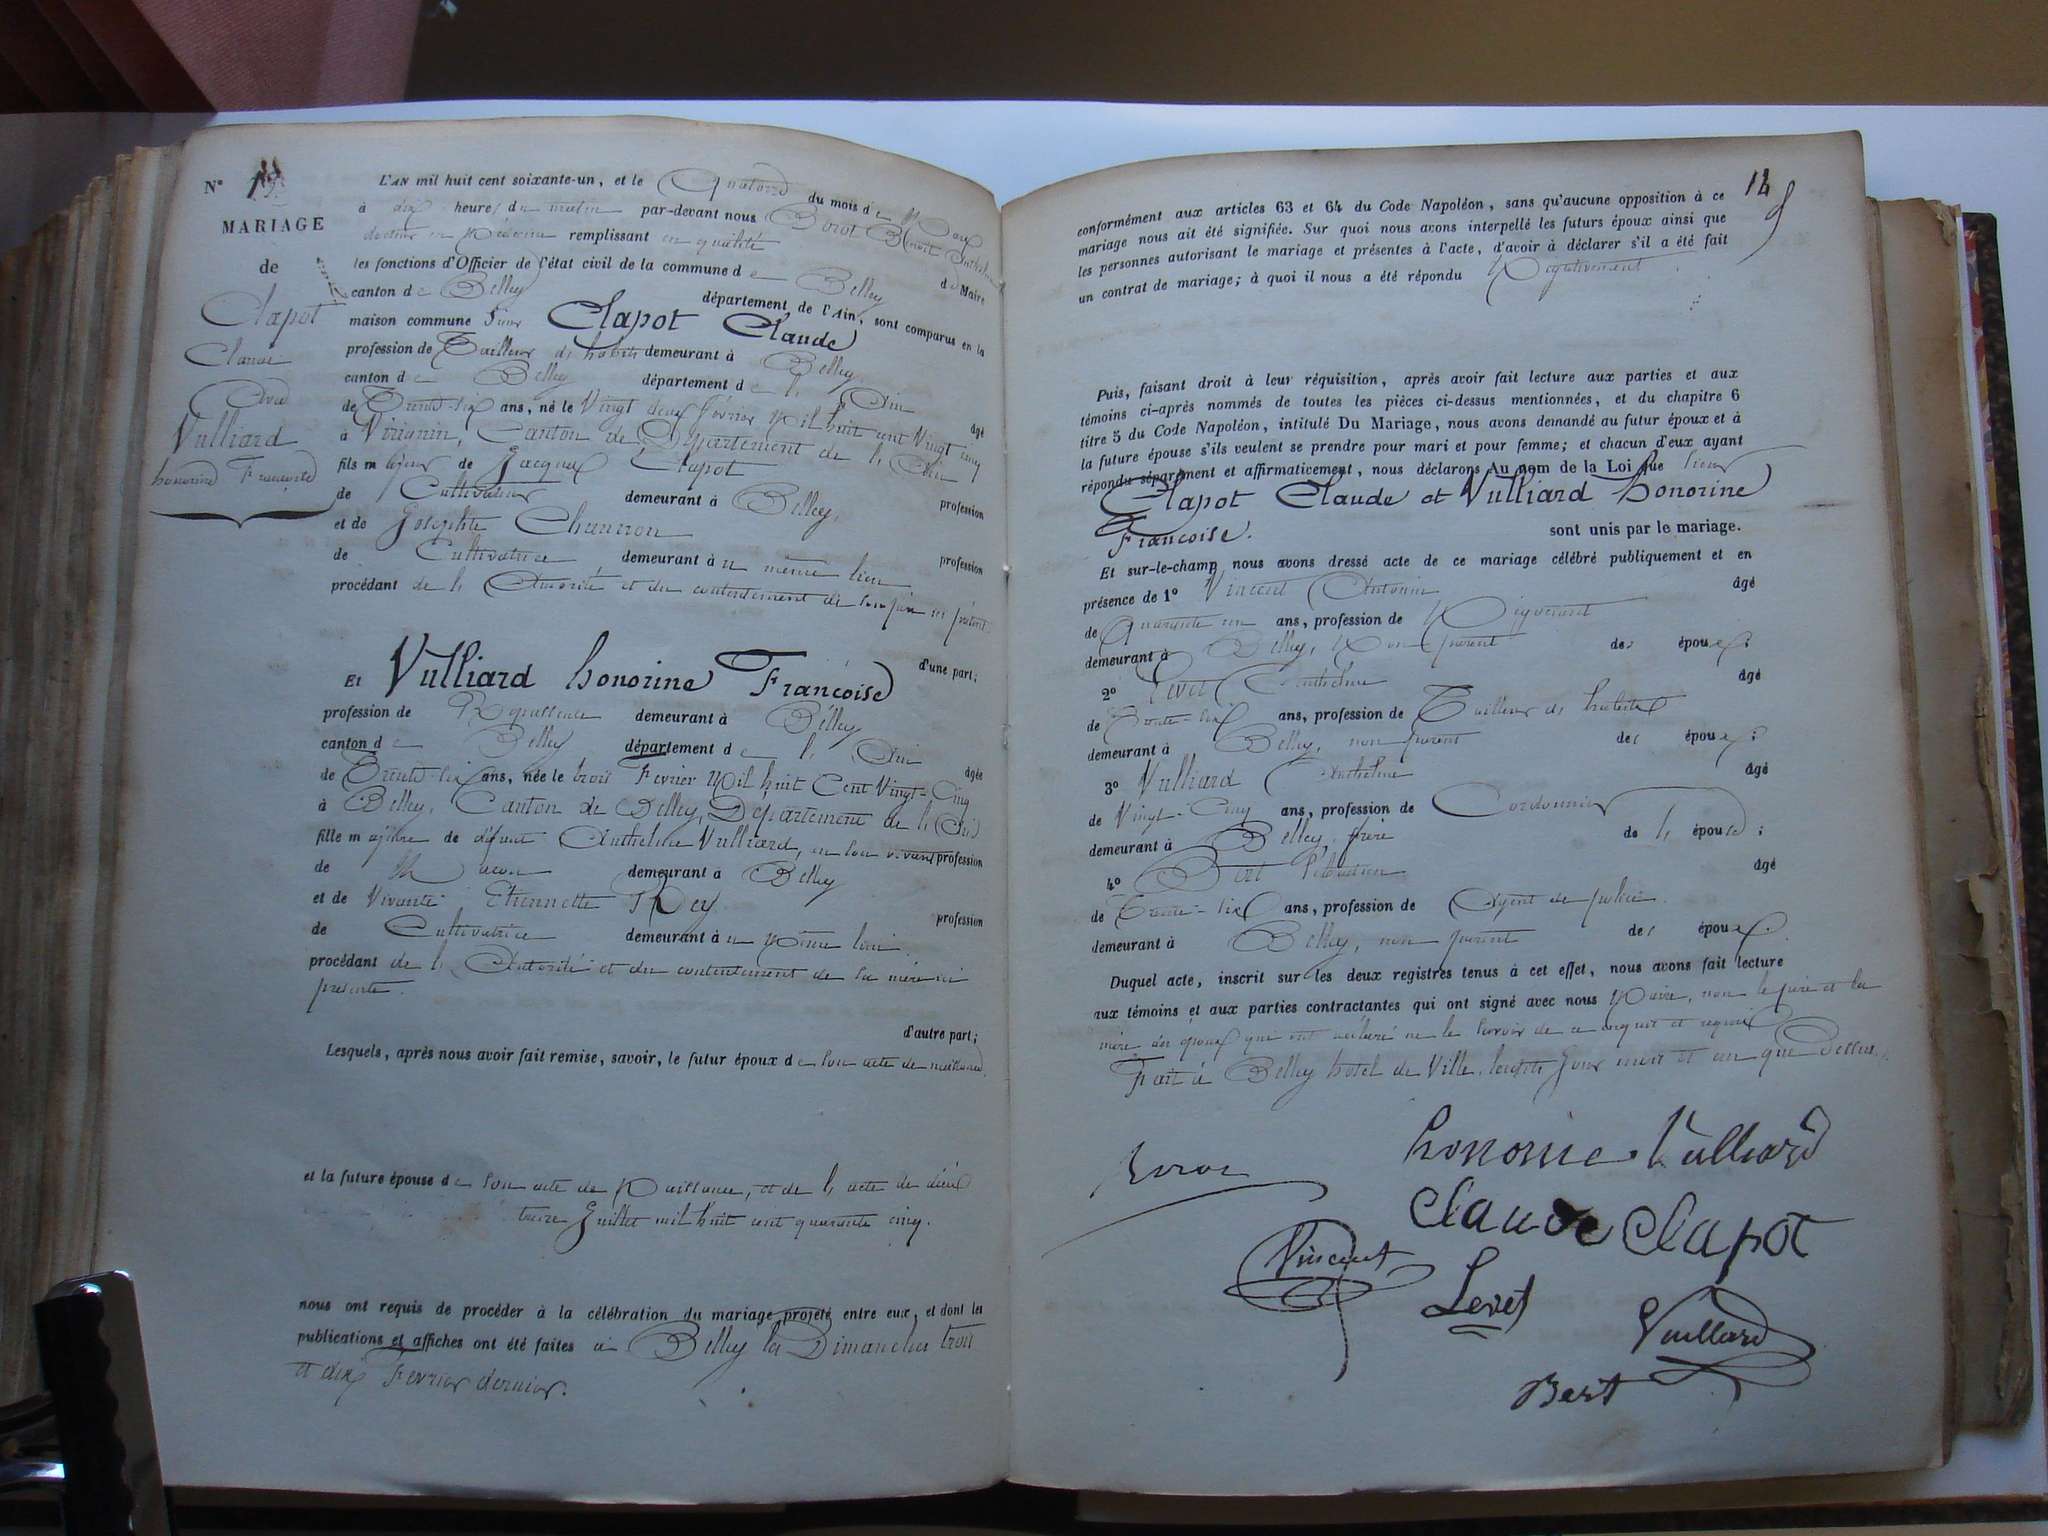 N°
MARIAGE
de
Clapot
Claude
Avec
Vulliard
honorine Francoise
L'AN mil huit cent soixante-un, et le Quatorze du mois de Mars
à dix heures du matin par-devant nous Borot Benoit Anthelme
docteur en Médecine remplissant en qualité de Maire
les fonctions d'Officier de l'état civil de la commune de Belley
canton de Belley département de l'Ain, sont comparus en la
maison commune Sieur Clapot Claude
profession de Tailleur d'habits demeurant à Belley
canton de Belley département de l'Ain âgé
de Trente-six ans, né le Vingt deux Février Mil huit cent Vingt cinq
à Virignin, Canton de Département de l'Ain
fils majeur de Jacques Clapot profession
de Cultivateur demeurant à Belley,
et de Josephte Chanron profession
de Cultivatrice demeurant à u même lieu
procédant de l'Autorité et du contentement de
d'une part;
Et Vulliard honorine Francoise
profession de Repasseuse demeurant à Belley
canton de Belley département de l'Ain âgée
de Trente-six ans, née le trois Fevrier Mil huit Cent Vingt-Cinq
à Belley, Canton de Belley, Département de l'Ain
fille majeure de défunt Anthelme Vulliard, en son vivant profession
de Macon demeurant à Belley
et de Vivante Etiennette Rey profession
de Cultivatrice demeurant à u Même lieu
procédant de l'Autorité et du contentement de sa mère ici
présente.
d'autre part;
Lesquels, après nous avoir fait remise, savoir, le futur époux de son acte de naissance.
et la future épouse de son acte de Naissance, et de l'acte de décès
treize Juillet mil huit cent quarante cinq.
nous ont requis de procéder à la célébration du mariage projeté entre eux, et dont les
publications et affiches ont été faites à Belley les Dimanches trois
et dix Fevrier dernier.
14
conformément aux articles 63 et 64 du Code Napoléon, sans qu'aucune opposition à ce
mariage nous ait été signifiée. Sur quoi nous avons interpellé les futurs époux ainsi que
les personnes autorisant le mariage et présentes à l'acte, d'avoir à déclarer s'il a été fait
un contrat de mariage; à quoi il nous a été répondu Négativement
Puis, faisant droit à leur réquisition, après avoir fait lecture aux parties et aux
témoins ci-après nommés de toutes les pièces ci-dessus mentionnées, et du chapitre 6
titre 5 du Code Napoléon, intitulé Du Mariage, nous avons demandé au futur époux et à
la future épouse s'ils veulent se prendre pour mari et pour femme; et chacun d'eux ayant
répondu séparément et affirmativement, nous déclarons Au nom de la Loi que Sieur
Clapot Claude et Vulliard honorine
Francoise. sont unis par le mariage.
Et sur-le-champ nous avons dressé acte de ce mariage célébré publiquement et en
présence de 1° Vincent Antonin âgé
de Quarante un ans, profession de
demeurant à Belley, Non parent des époux;
2° Levet Anthelme âgé
de Trente-six ans, profession de Tailleur d'habits
demeurant à Belley, non parent des époux;
3° Vulliard Anthelme âgé
de Vingt-Cinq ans, profession de Cordonnier
demeurant à Belley, frère de l'épouse;
4° Bert Sébastien âgé
de Trente-six ans, profession de Agent de police.
demeurant à Belley, non parent des époux.
Duquel acte, inscrit sur les deux registres tenus à cet effet, nous avons fait lecture
aux témoins et aux parties contractantes qui ont signé avec nous Maire, non le père et la
mère des époux qui ont déclaré ne le savoir de ce enquis et requis
Fait à Belley hotel de Ville, lesdits Jour mois et an que dessus.
honorine Vulliard
Borot
Claude Clapot
Vincent
Levet
Vulliard
Bert